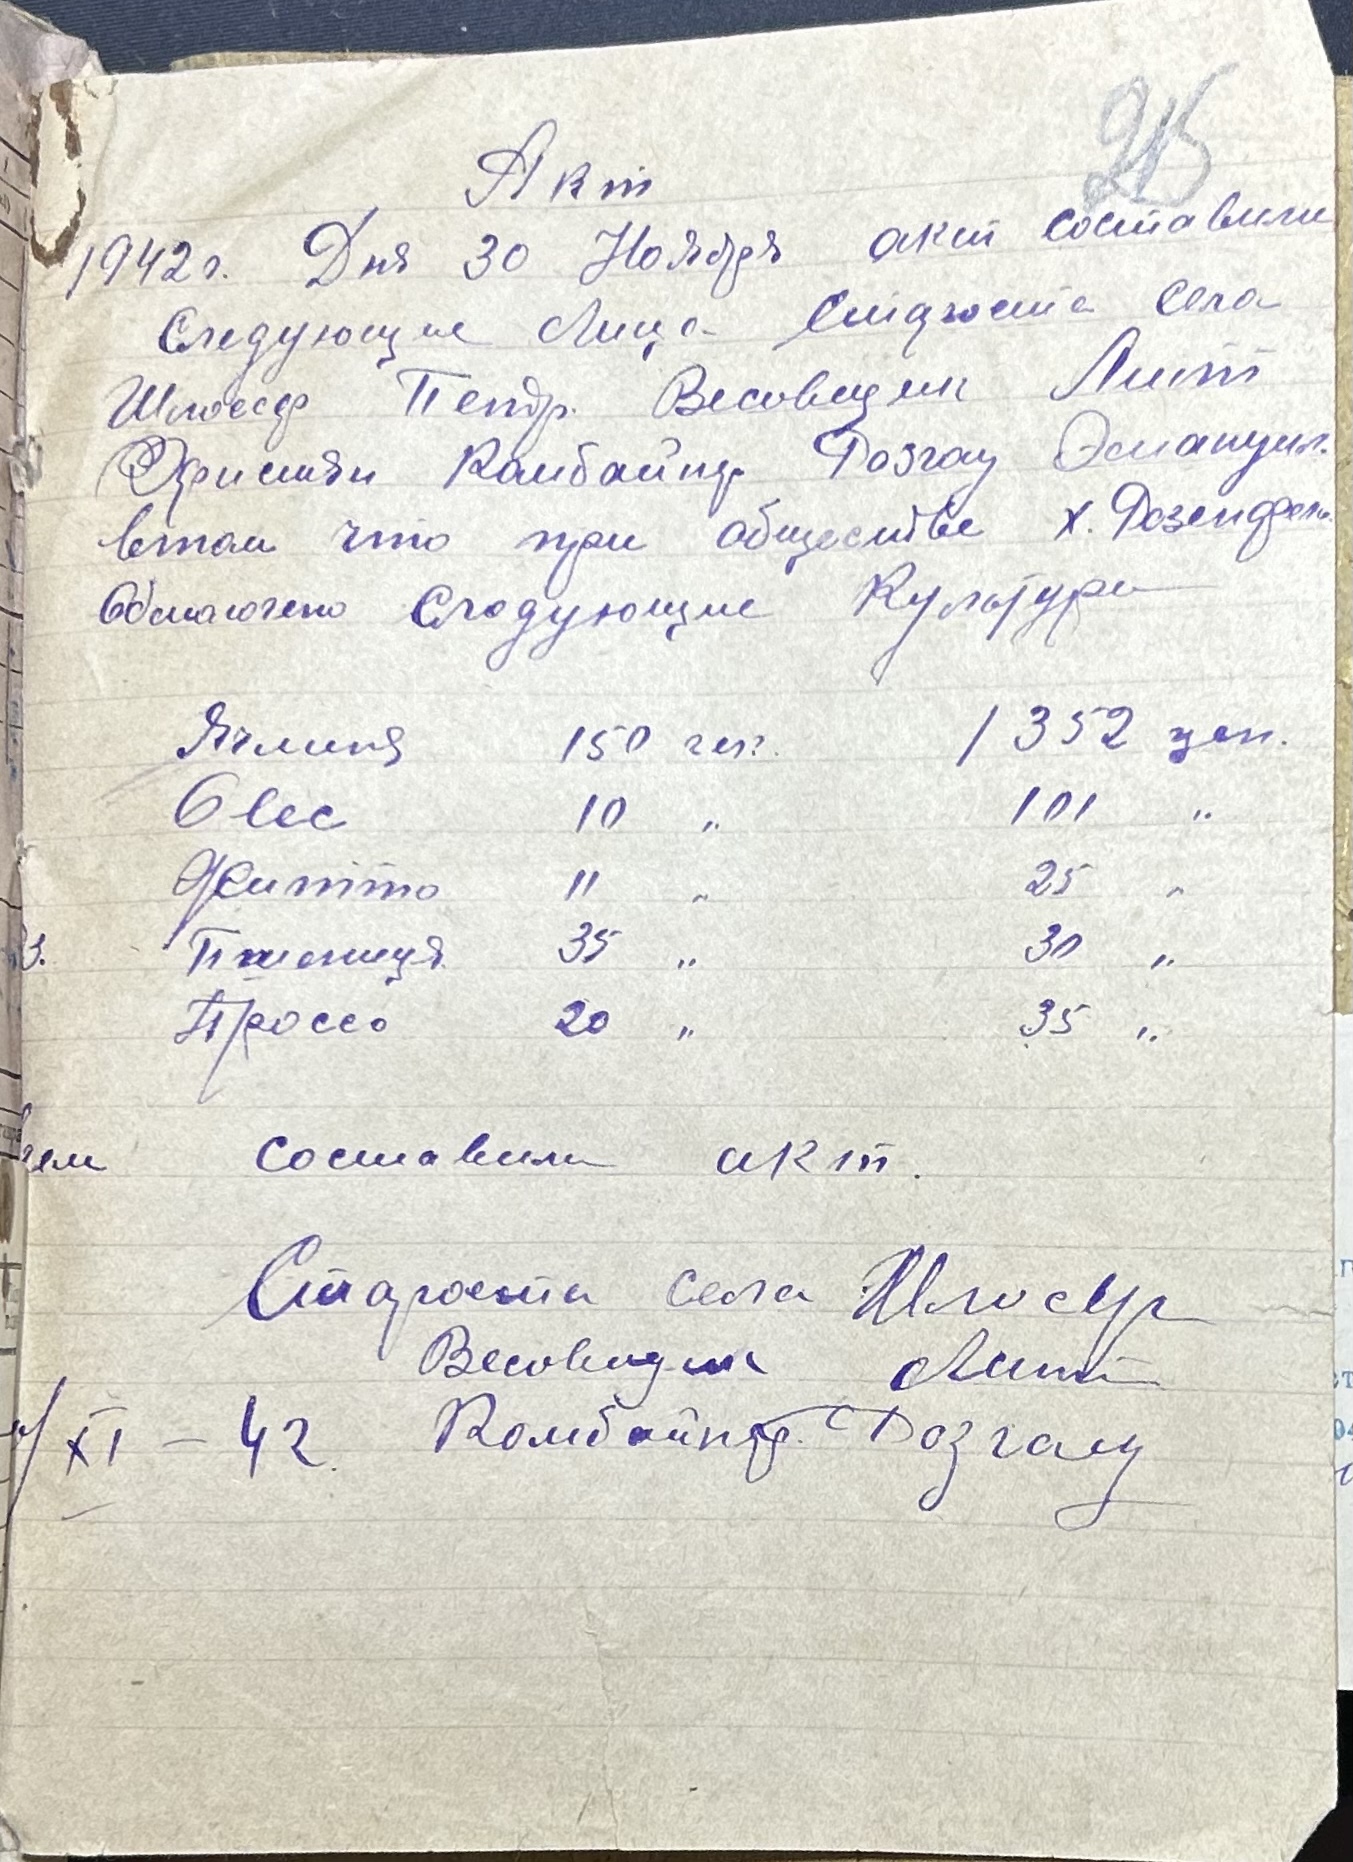 215
Акт
1942 г. Дня 30 Ноября акт составили
Следующие Лица Староста села
Шлоссер Петр. Весовщик Литт
Комбайнер
втом что при обществе х. Розенфель
Обмолочено Следующие Культуры
Ячменя 150 гек. 1352 цен.
Овес 10 " 101 "
Житто 11 " 25 "
Пшеница 35 " 30 "
Проссо 20 " 35 "
чем составили акт.
Староста села Шлоссер
Весовщик Литт
XI – 42. Комбайнер.